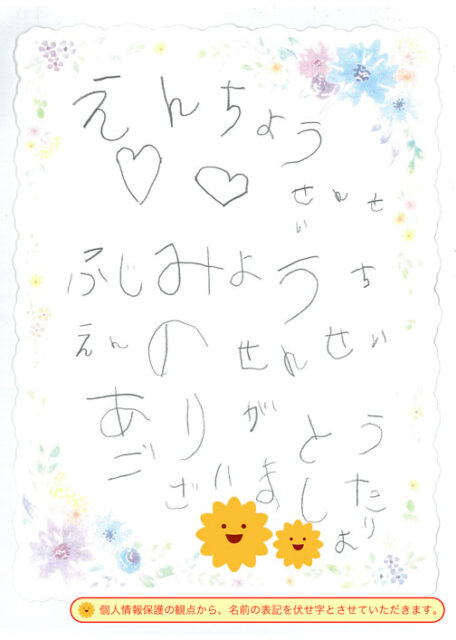 えんちょう
せんせ
い
ふじみようち
えんのせんせい
ありがとう
ございました
より
個人情報保護の観点から、名前の表記を伏せ字とさせていただきます。